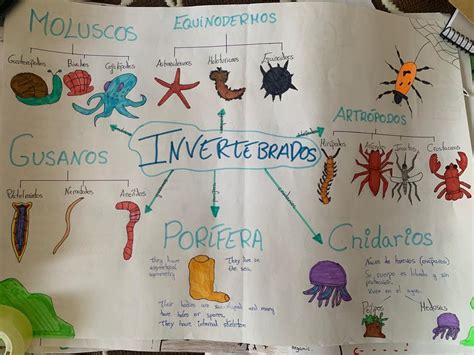 MOLUSCOS
EQUINODERMOS
Gasterópodos Bivalvos Cefalópodos
Asteroideos Holoturoideos Equinoideos
ARTRÓPODOS
Miriápodos Arácnidos Insectos Crustáceos
INVERTEBRADOS
GUSANOS
Platelmintos Nematodos Anélidos
PORÍFERA
They have asymmetrical symmetry
They live on the sea.
Their bodies are and many
have holes or spores.
They have internal skeleton
Cnidarios
Nacen de huevos (ovíparos)
Su cuerpo es blando y sin
protección.
Viven en el agua.
Pólipos Medusas